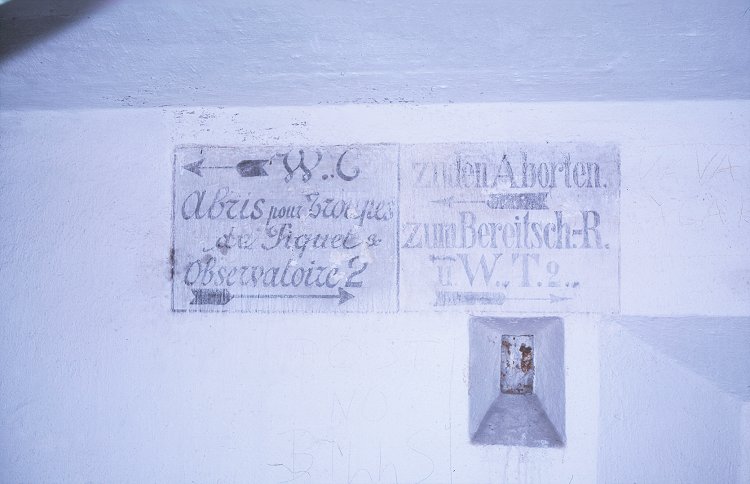 W.C
Abris pour Troupes
du Piquet &
Observatoire 2
zu den Aborten.
zum Bereitsch.-R.
u. W. T. 2.